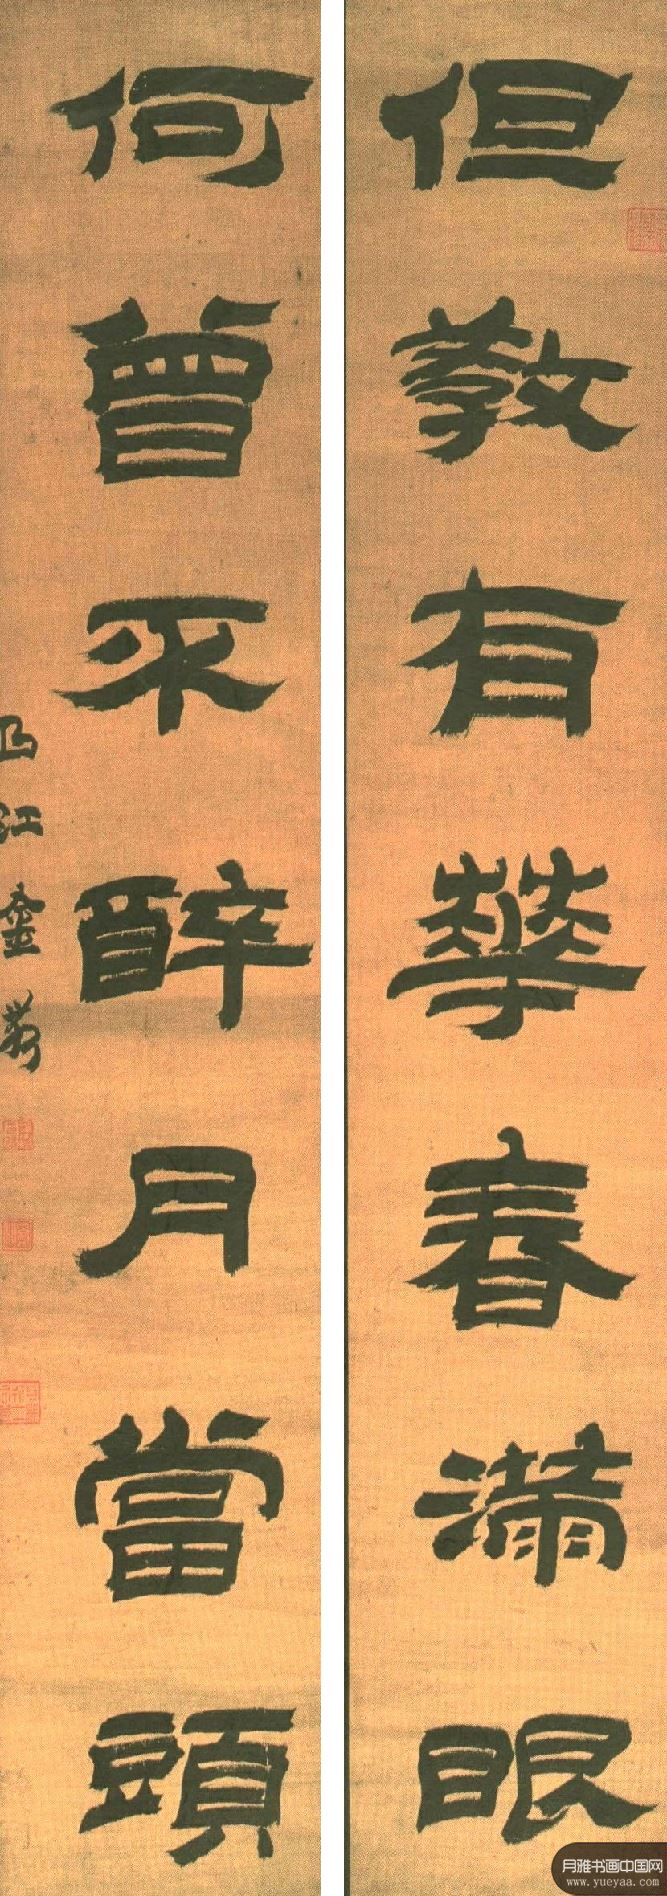 但教有華春滿眼
何曾不醉月當頭
曲江金農
月雅书画中国网
www.yueyaa.com